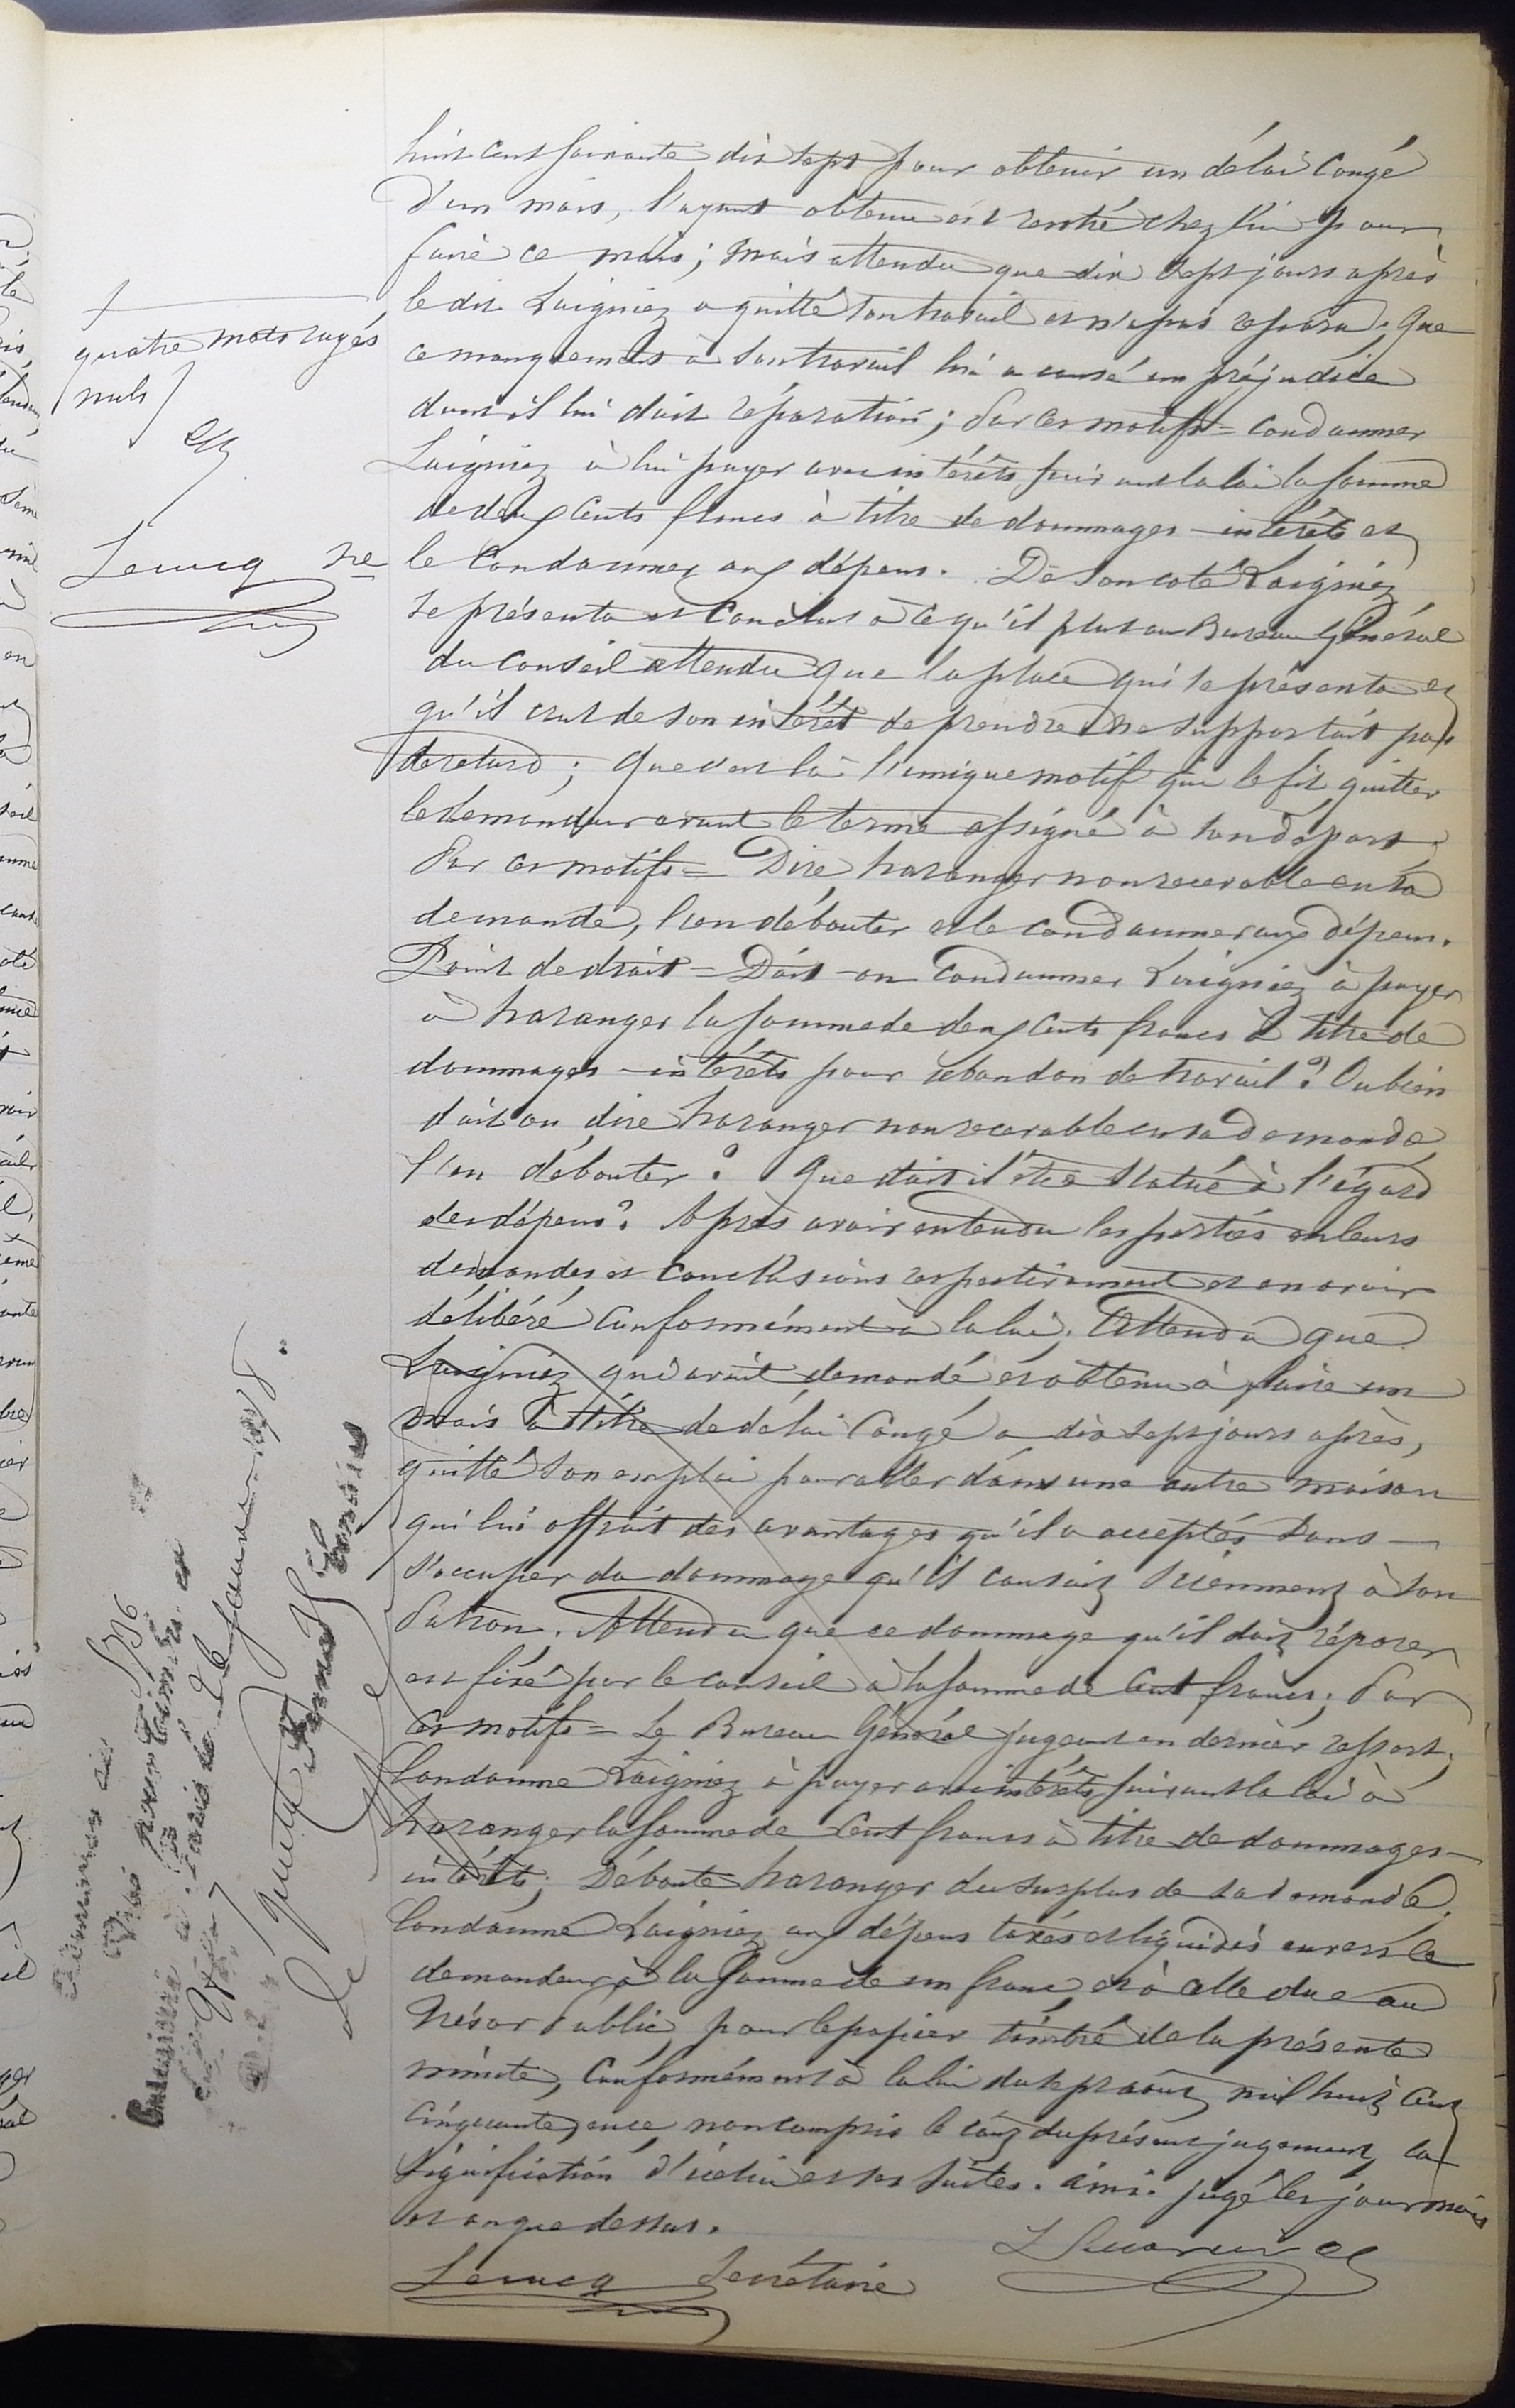 huit cent soixante dix sept pour obtenir un délai congé
d'un mois, l'ayant obtenu est rentré chez lui pour
faire ce mois; mais attendu que dix sept jours après
le dit Laigniez a quitté son travail et n'a pas reparu; que
ce manquement à son travail lui a causé un préjudice
dont il lui doit réparation; Par ces motifs = condamner
Laigniez à lui payer avec intérêts suivant la loi la somme
de deux cents francs à titre de dommages-intérêts et
le condamner aux dépens. De son coté Laigniez
se présenta et conclut à ce qu'il plut au Bureau Général
du Conseil attendu que la place qui se présenta et
qu'il crut de son intérêt de prendre ne supportait pas
de retard; que c'est là l'unique motif qui le fit quitter
le demandeur avant le terme assigné à son départ.
Par ces motifs = Dire haranger non recevable en sa
demande, l'en débouter et le condamner aux dépens.
Point de droit = Doit-on condamner Laigniez à payer
à haranger la somme de deux cents francs à titre de
dommages-intérêts pour abandon de travail? Ou bien
doit-on dire haranger non recevable en sa demande
l'en débouter? Que doit-il être statué à l'égard
des dépens? Après avoir entendu les parties en leurs
demandes et conclusions respectivement et en avoir
délibéré conformément à la loi; Attendu que
Laigniez qui avait demandé et obtenu à faire un
mois à titre de délai congé a dix sept jours après,
quitté son emploi pour aller dans une autre maison
qui lui offrait des avantages qu'il a acceptés sans
s'occuper du dommage qu'il causait sciemment à son
Patron. Attendu que ce dommage qu'il doit réparer
est fixé par le conseil à la somme de cent francs; Par
ces motifs = Le Bureau Général jugeant en dernier ressort;
Condamne Laigniez à payer avec intérêts suivant la loi à
haranger la somme de cent francs à titre de dommages-
intérêts; Déboute haranger du surplus de sa demande;
Condamne Laigniez aux dépens taxés et liquidés envers le
demandeur à la somme de un franc, et à celle due au
Trésor Public, pour le papier timbré de la présente
minute, conformément à la loi du sept août mil huit cent
cinquante, ence, non compris le coût du présent jugement, la
signification d'icelui et ses suites. Ainsi jugé les jour mois
et an que dessus.
Lecucq Secrétaire
quatre mots rayés
nuls
Lecucq